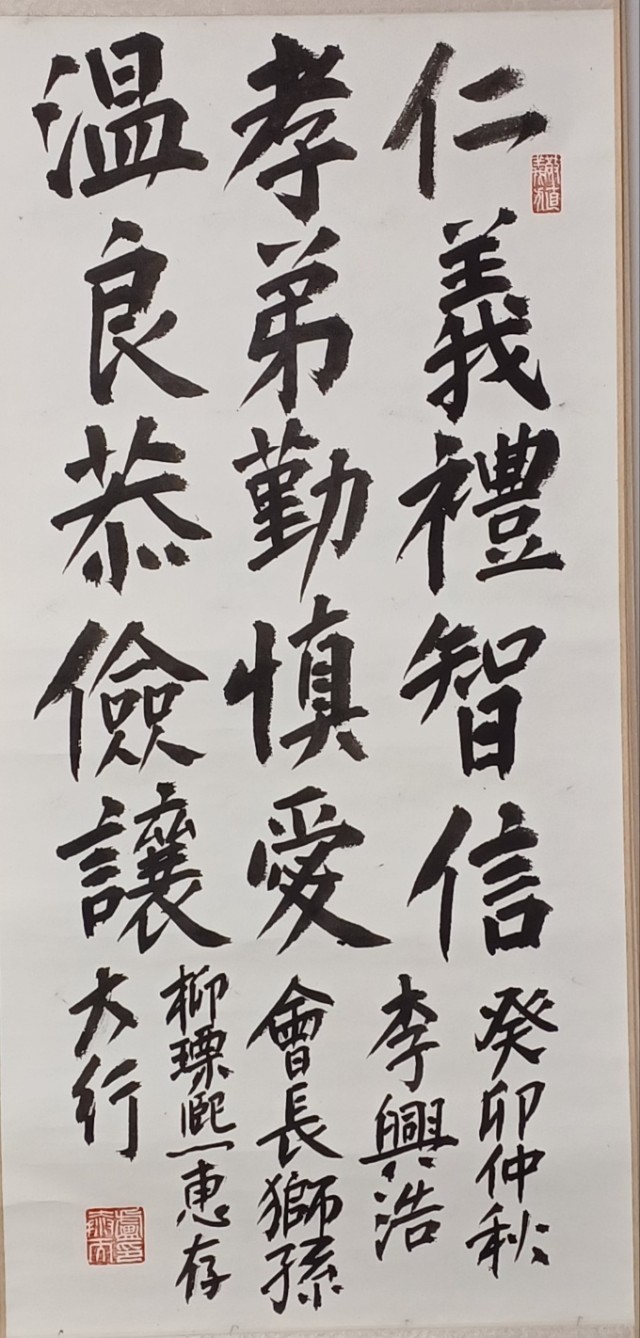 仁義禮智信
孝弟勤慎愛
温良恭儉讓
癸卯仲秋
李興浩
會長獅孫
柳瑮熙惠存
大行